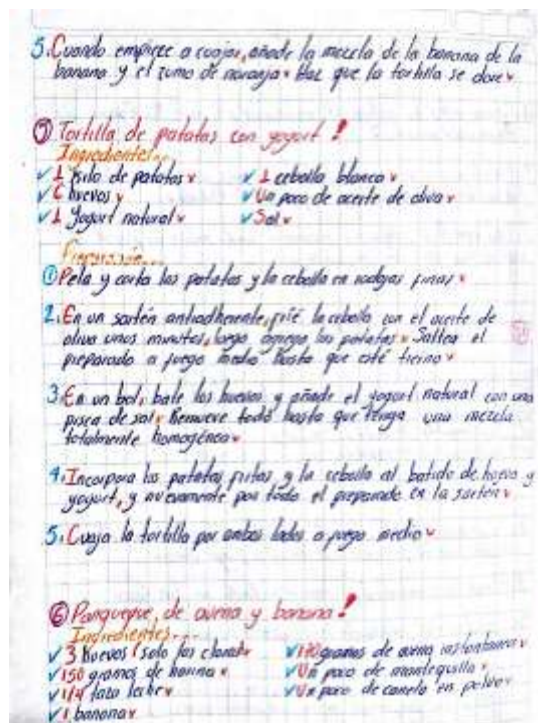 5. Cuando empiece a cuajar, añade la mezcla de la banana de la
banana y el zumo de naranja. Haz que la tortilla se dore
⑤ Tortilla de patatas con yogurt!
Ingredientes...
✓ 1 kilo de patatas
✓ 1 cebolla blanca
✓ 6 huevos
✓ Un poco de aceite de oliva
✓ 1 Yogurt natural
✓ Sal
① Pela y corta las patatas y la cebolla en rodajas finas
2. En un sartén antiadherente, fríe la cebolla con el aceite de
oliva unos minutos, luego agrega las patatas. Saltea el
preparado a fuego medio hasta que esté tierno
3. En un bol, bate los huevos y añade el yogurt natural con una
pisca de sal. Remueve todo hasta que tenga una mezcla
totalmente homogénea
4. Incorpora las patatas fritas y la cebolla al batido de huevo y
yogurt, y nuevamente pon todo el preparado en la sartén
5. Cuaja la tortilla por ambos lados a fuego medio
⑥ Panqueque de avena y banana!
Ingredientes...
✓ 3 huevos (solo las claras)
✓ gramos de avena instantanea
✓ 150 gramos de harina
✓ Un poco de mantequilla
✓ 1/4 taza leche
✓ Un poco de canela en polvo
✓ 1 banana